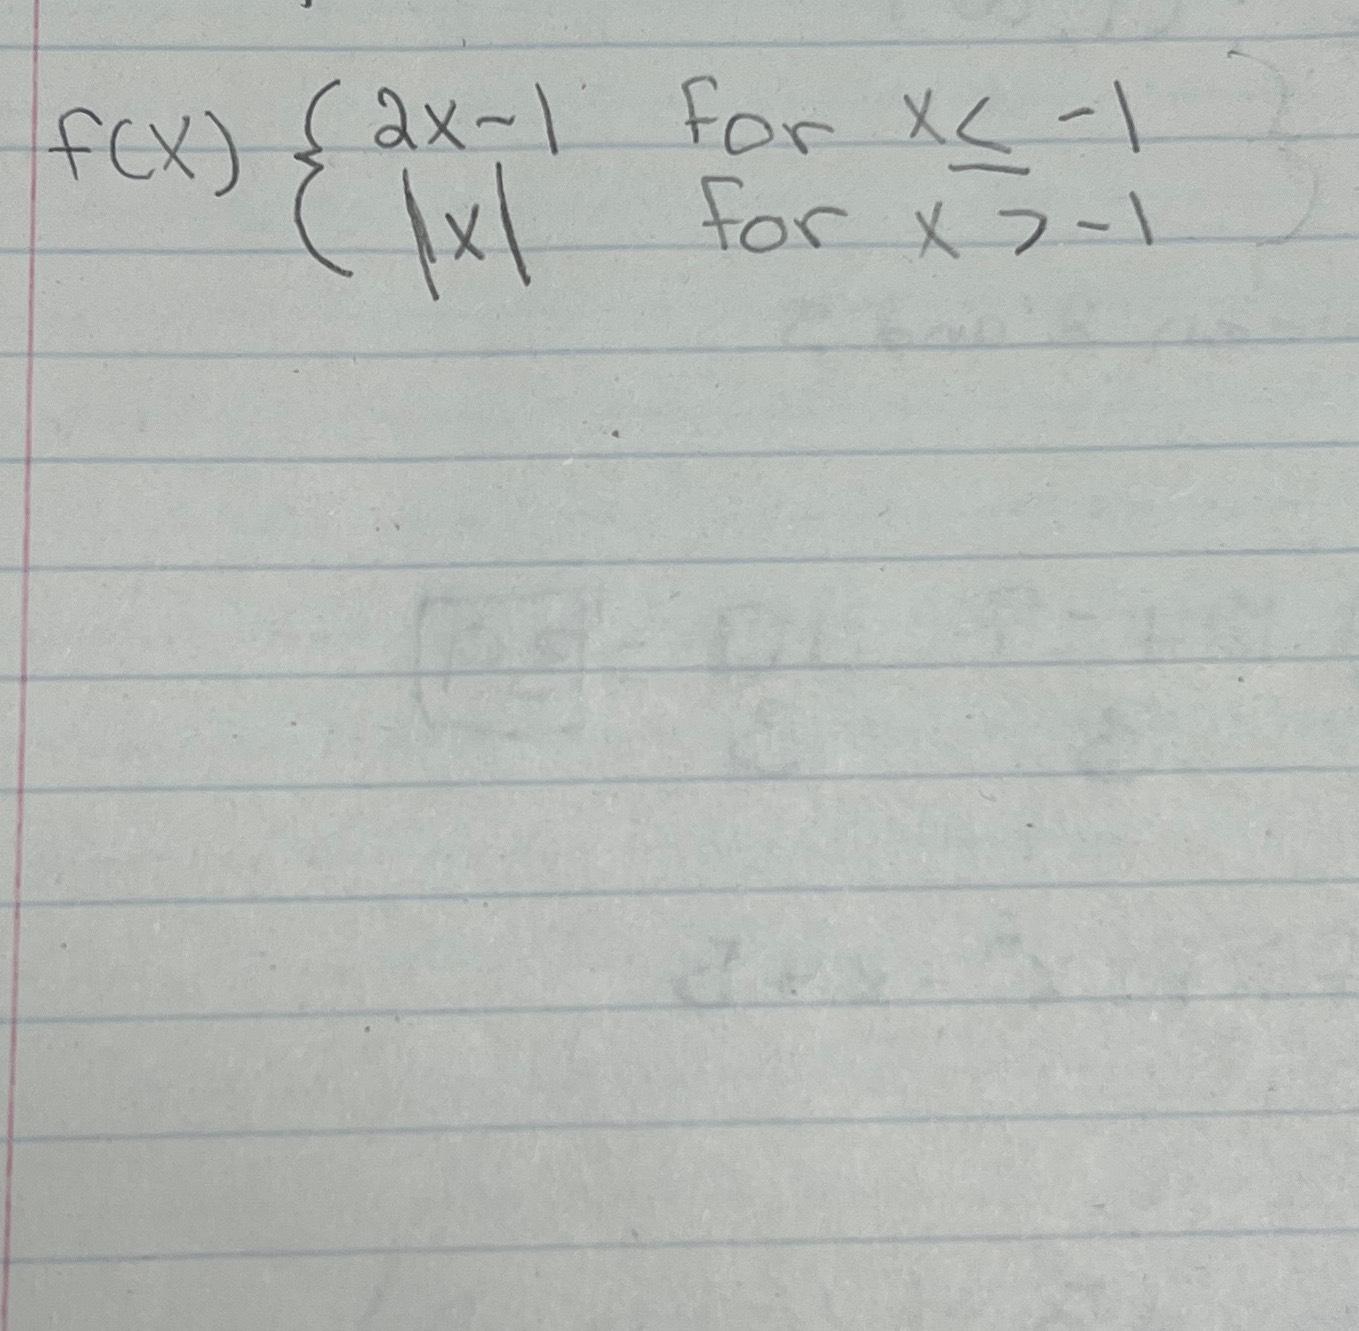 f(x) { 2x-1 for x ≤ -1
|x| for x > -1